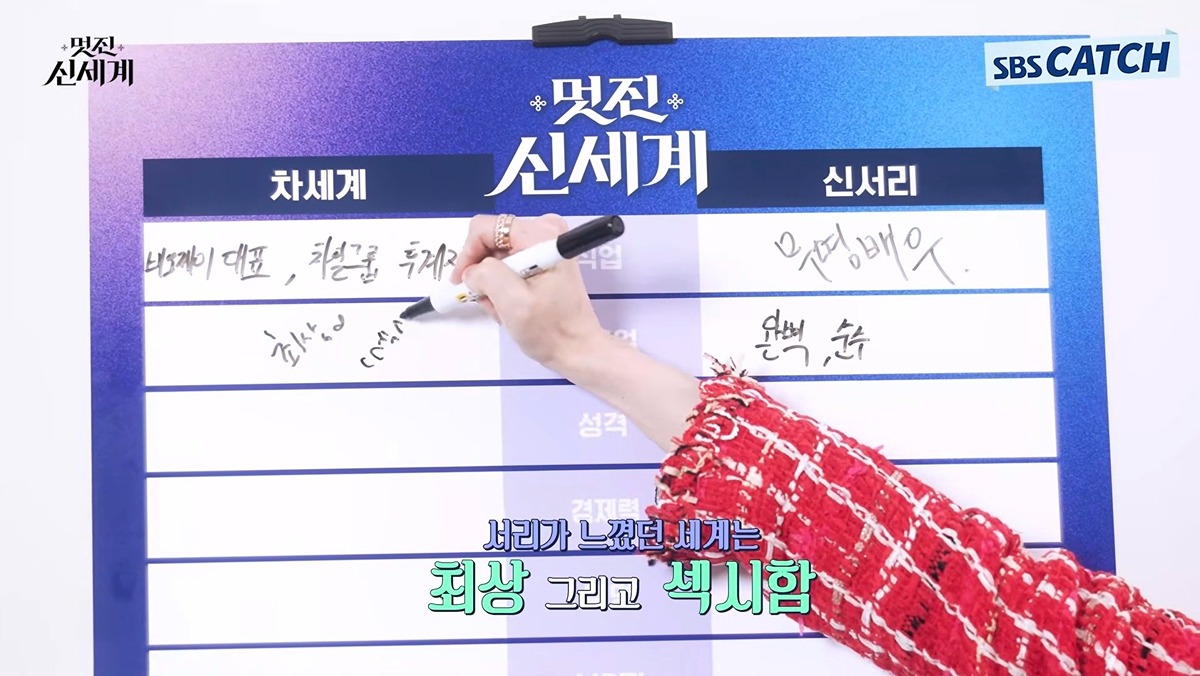 멋진
신세계
SBS CATCH
멋진
신세계
차세계
신서리
대표, 차일그룹 투제자
직업
무명배우.
최상
완벽, 순수
성격
경제력
서리가 느꼈던 세계는
최상 그리고 섹시함